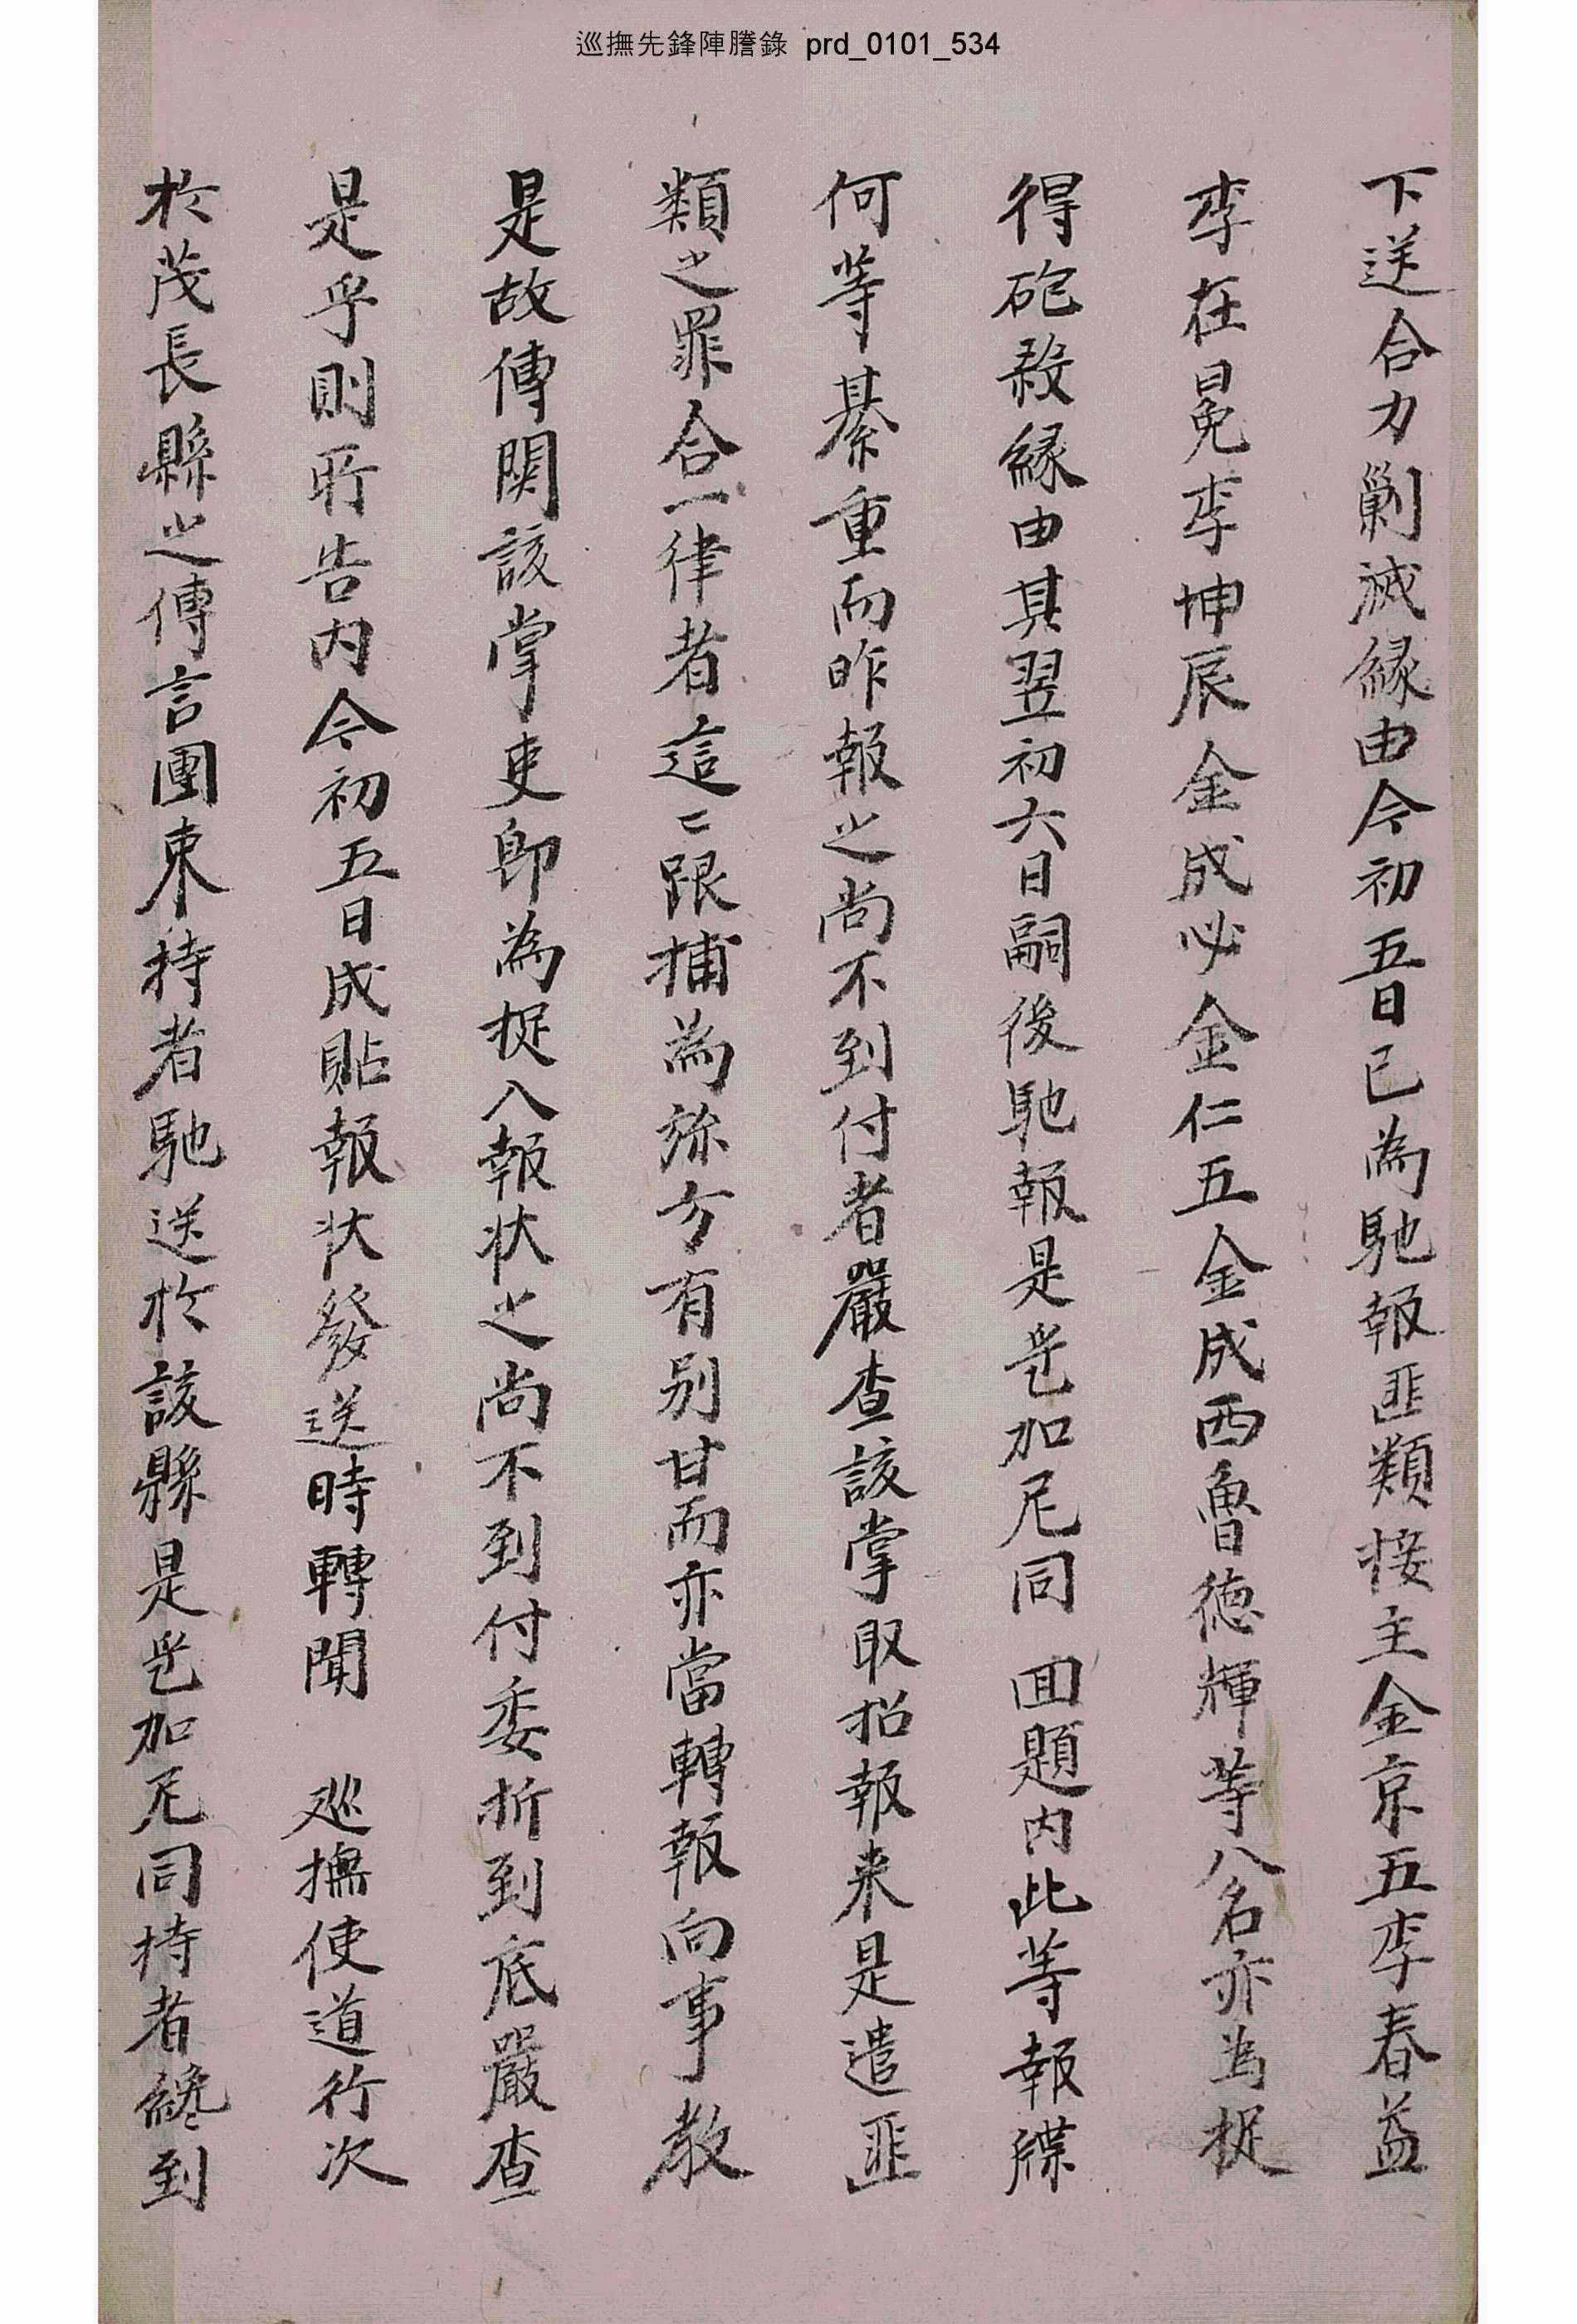 巡撫先鋒陣謄錄 prd_0101_534
下送合力剿滅緣由今初五日已為馳報匪類接主金京五李春益
李在晃李坤辰金成必金仁五金成西魯德輝等八名亦為捉
得砲殺緣由其翌初六日嗣後馳報是乎加尼同 回題內此等報牒
何等綦重而昨報之尚不到付者嚴查該掌取招報来是遣匪
類之罪合一律者這這跟捕為旀方有別甘而亦當轉報向事教
是故傳関該掌吏卽為捉入報状之尚不到付委折到底嚴查
是乎則所告內今初五日成貼報状發送時轉聞 巡撫使道行次
於茂長縣之傳言團束持者馳送於該縣是乎加尼同持者纔到